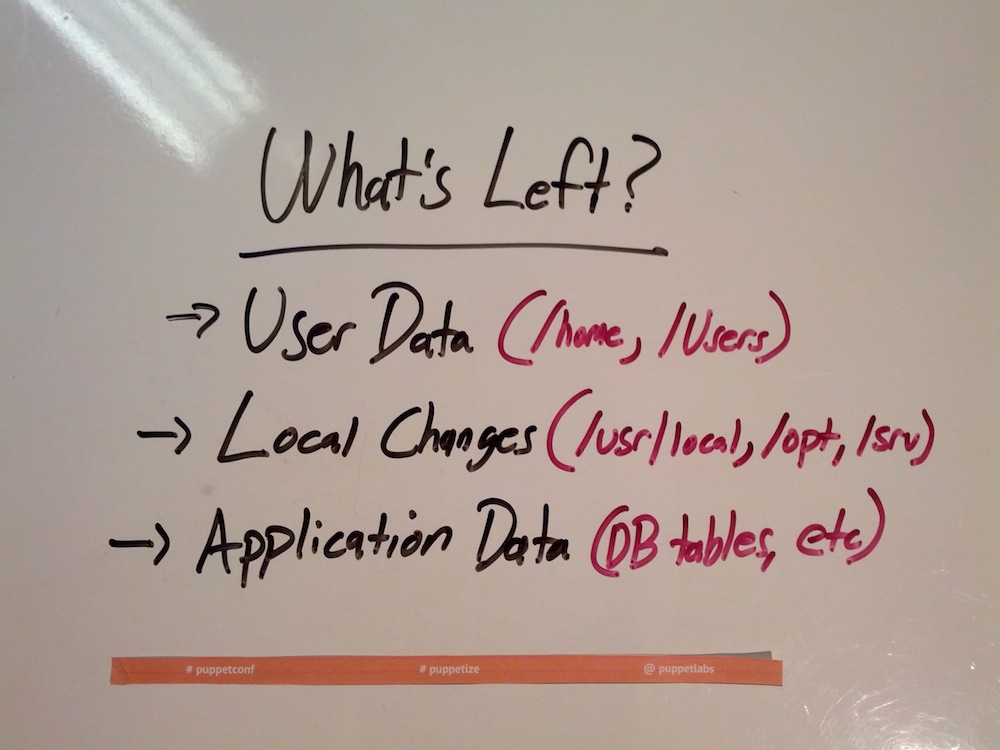 What's Left?
→ User Data (/home, /Users)
→ Local Changes (/usr/local, /opt, /srv)
→ Application Data (DB tables, etc)
# puppetconf # puppetize @ puppetlabs